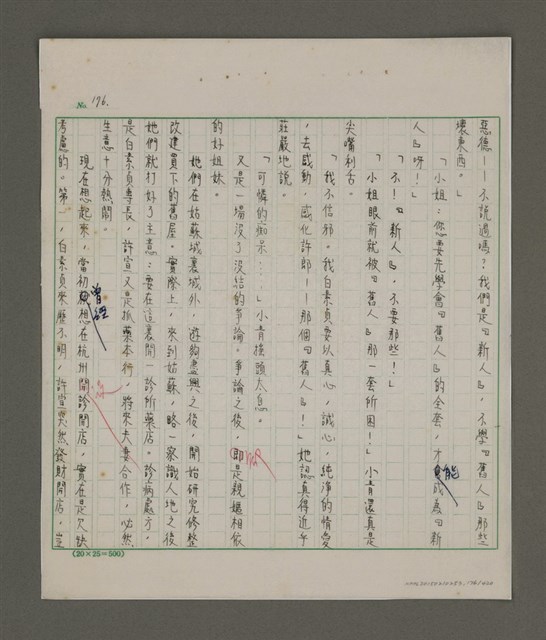 No. 176.
惡德——不說過嗎?我們是『新人』,不學『舊人』那些
壞東西。」
「小姐:您要先學會『舊人』的全套,才能成為『新
人』呀!」
「不!『新人』,不要那些!」
「小姐眼前就被『舊人』那一套所困!」小青還真是
尖嘴利舌。
「我不信邪。我白素貞要以真心,誠心,純淨的情愛
,去感動、感化許郎——那個『舊人』!」她認真得近乎
莊嚴地說。
「可憐的痴呆……」小青搖頭太息。
又是一場沒了沒結的爭論。爭論之後,即是親嬺相依
的好姐妹。
她們在姑蘇城裏城外,遊夠盡興之後,開始研究修整
改建買下的舊屋。實際上,來到姑蘇,略一察識人地之後
她們就打好了主意:要在這裏開一診所藥店。診病處方,
是白素貞專長,許宣又是抓藥本行,將來夫妻合作,必然
生意十分熱鬧。
現在想起來,當初曾經想在杭州開診開店,實在是欠缺
考慮的。第一,白素貞來歷不明,許宣突然發財開店,豈
(20×25=500)